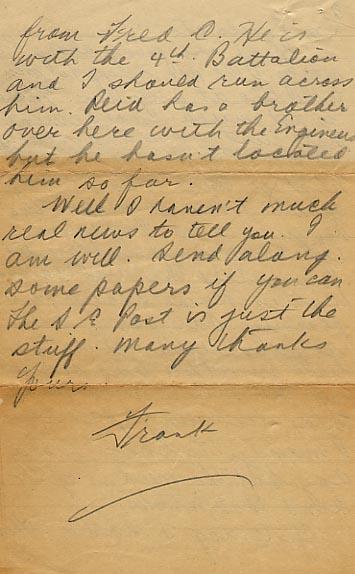 from Fred C. He is
with the 4th Battalion
and I should run across
him. Reid has a brother
over here with the Engineers
but he hasn't located
him so far.
Well I haven't much
real news to tell you. I
am well. Send along.
some papers if you can
The S E Post is just the
stuff. Many thanks
Yours.
Frank